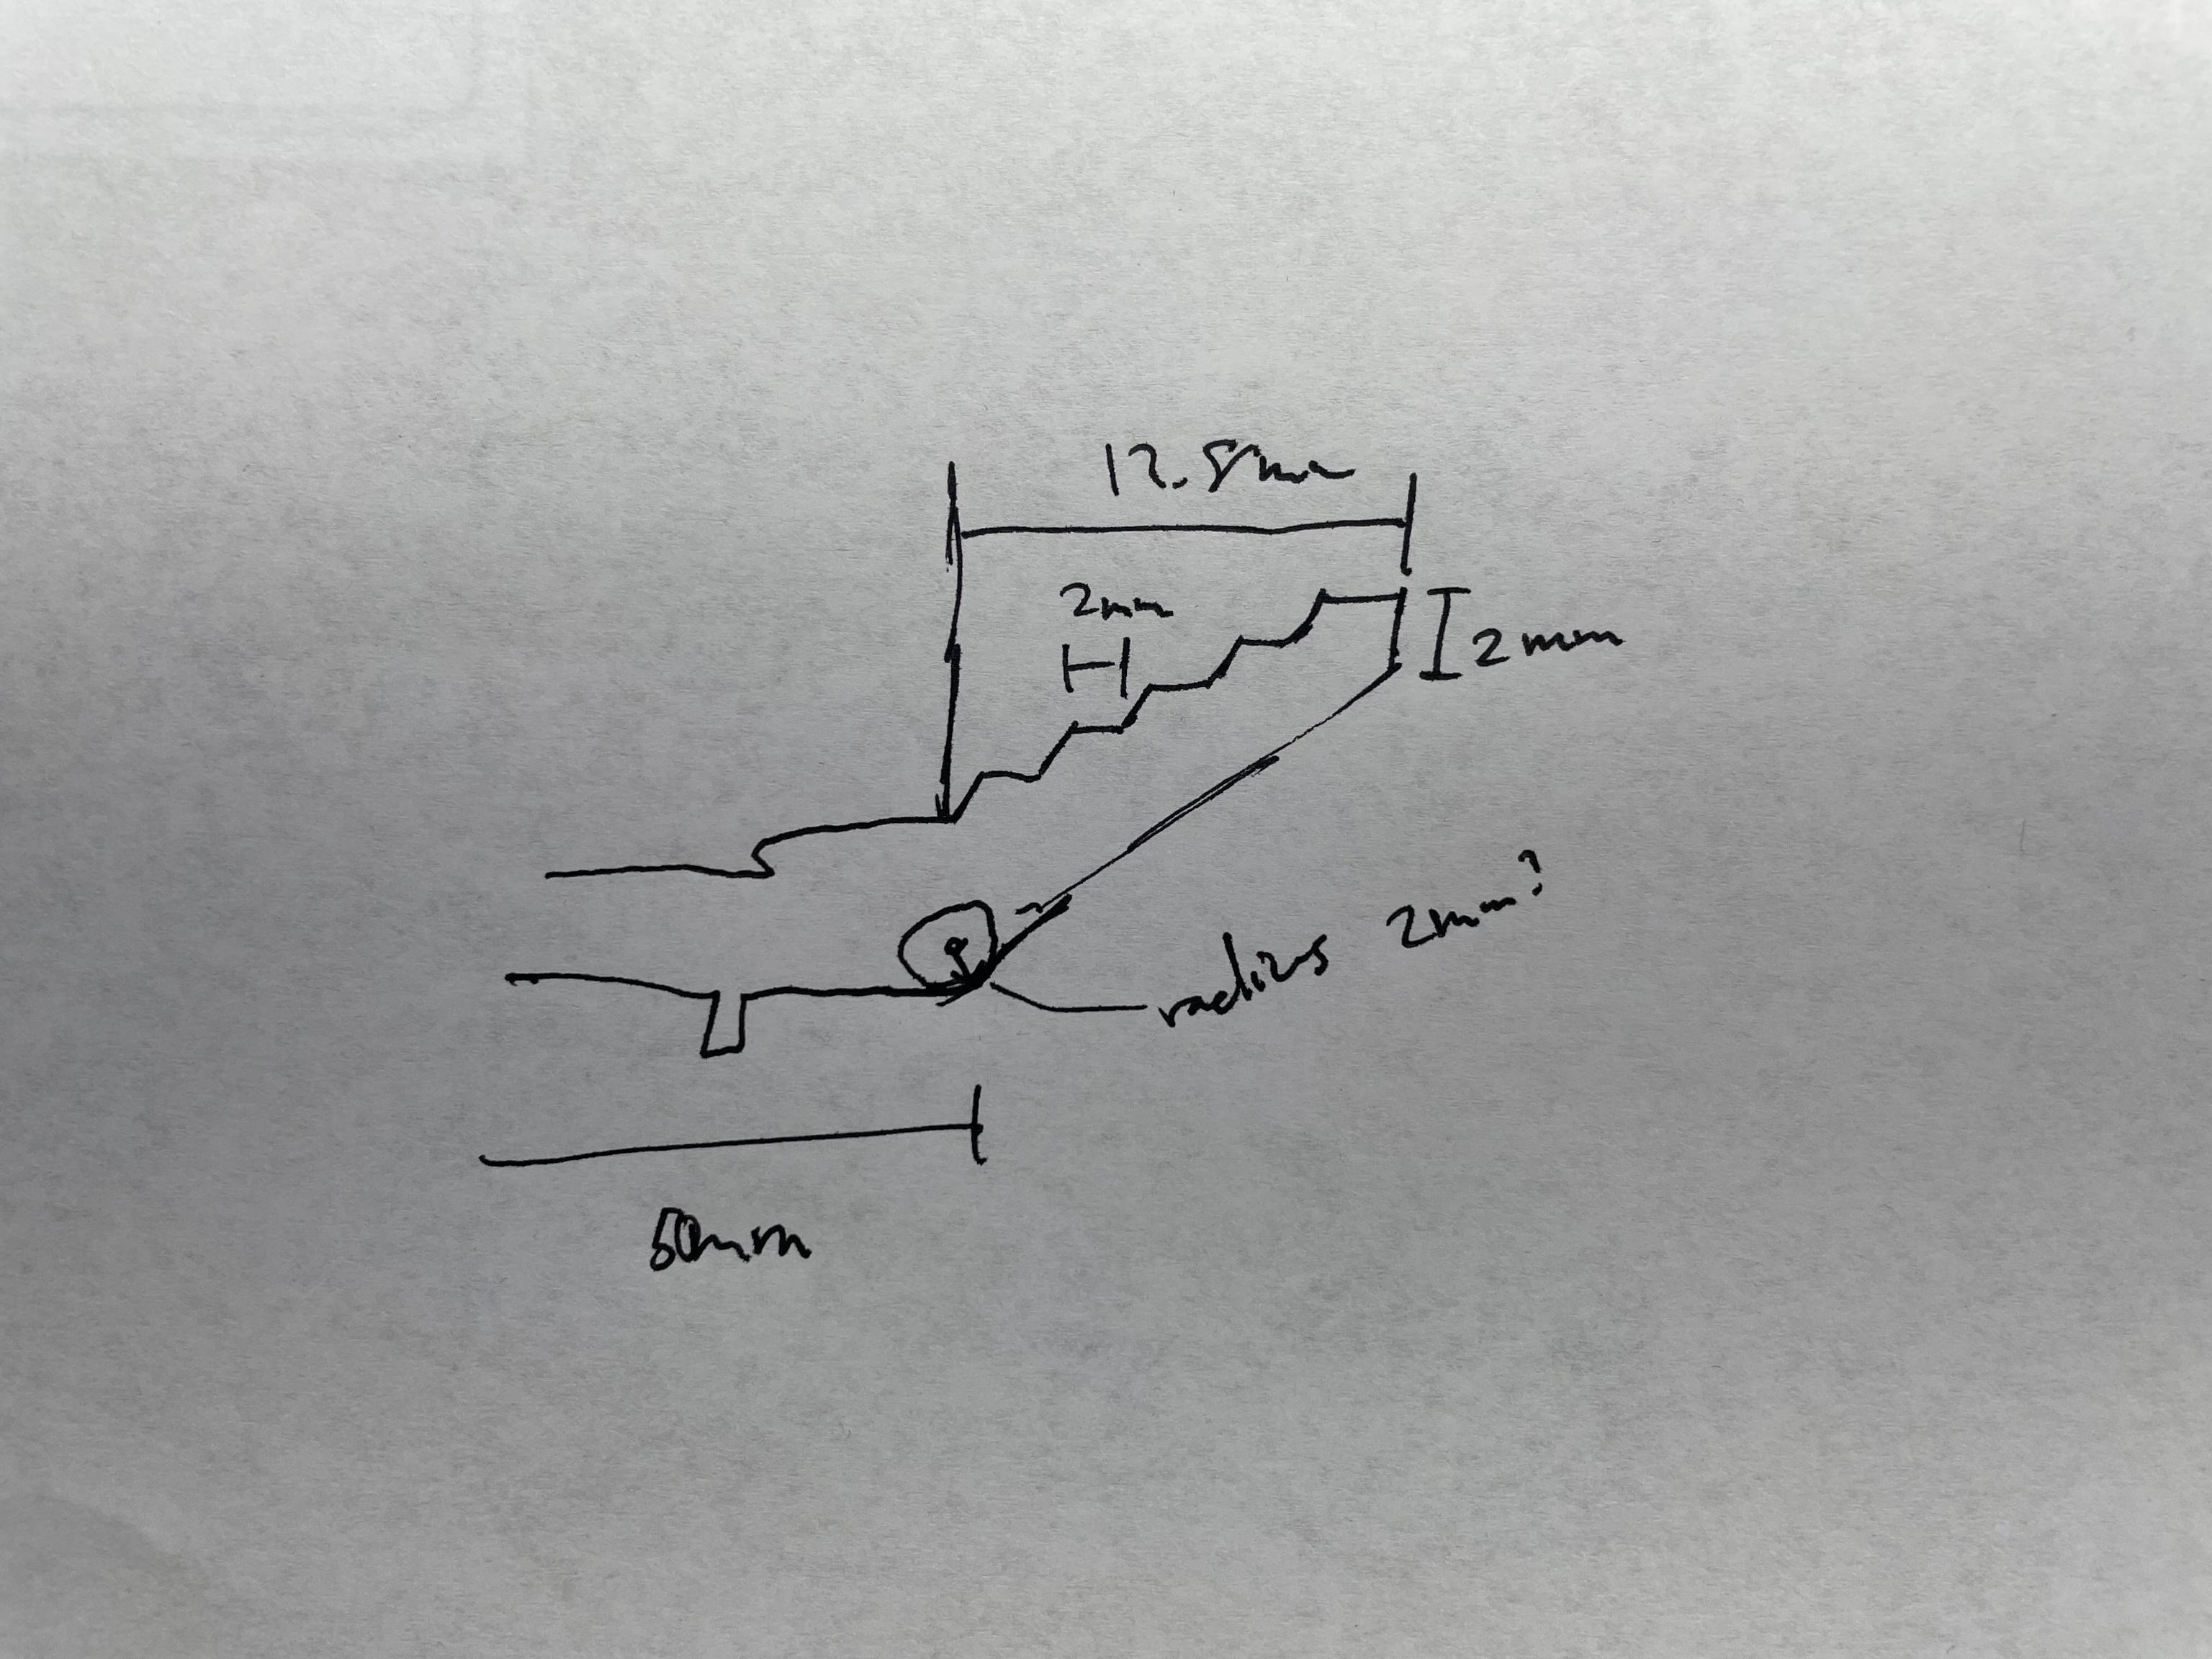 12.5mm
2mm
2mm
radius 2mm?
50mm